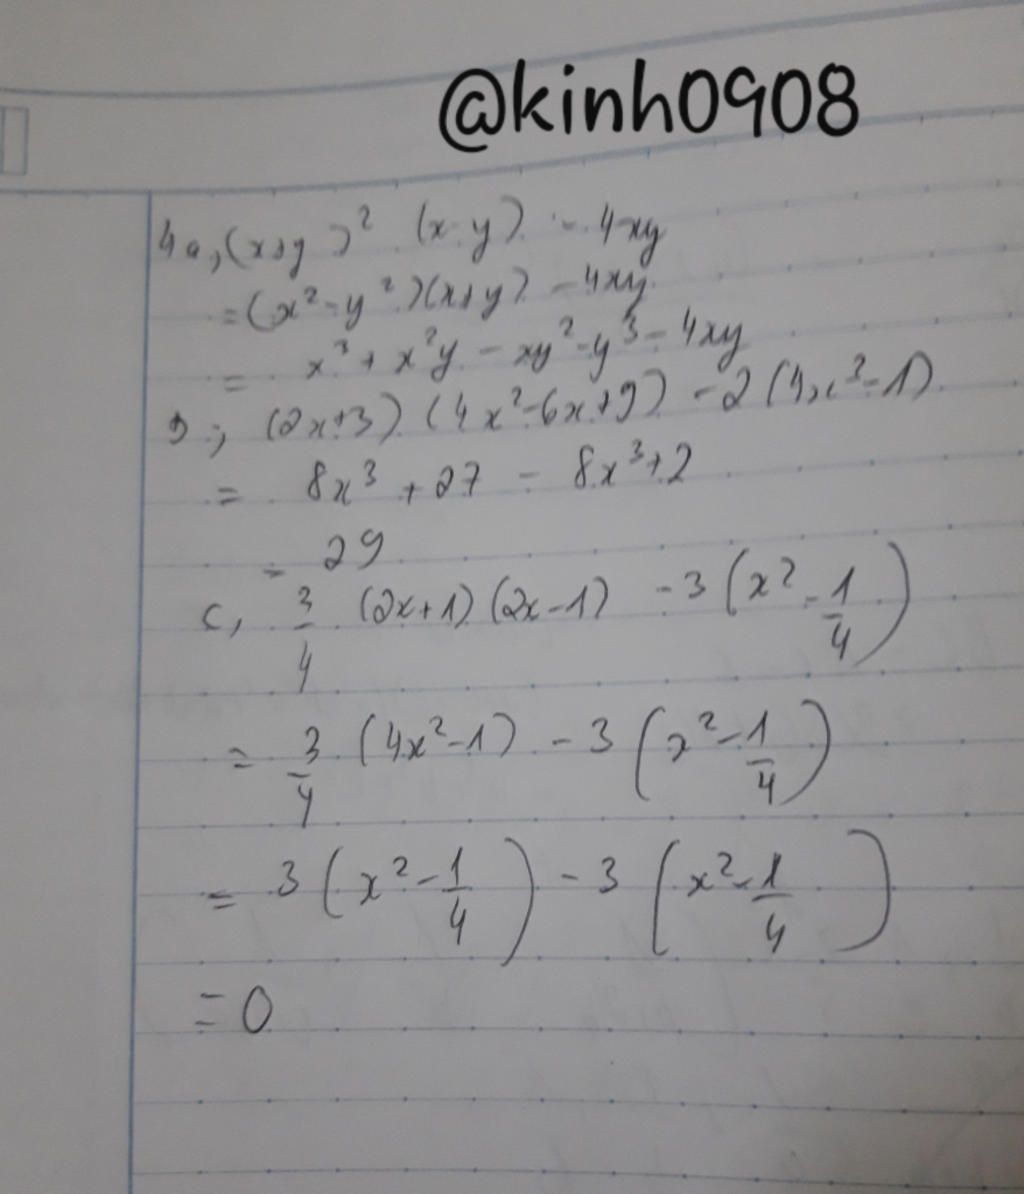 @kinh0908
4a, (x+y)² (x-y) - 4xy
= (x²-y²)(x+y) - 4xy
= x³ + x²y - xy² - y³ - 4xy
b, (2x+3) (4x²-6x+9) - 2(4x³-1)
= 8x³ + 27 - 8x³+2
= 29
c, 3/4 (2x+1) (2x-1) - 3 (x² - 1/4)
= 3/4 (4x²-1) - 3 (x² - 1/4)
= 3 (x² - 1/4) - 3 (x² - 1/4)
= 0